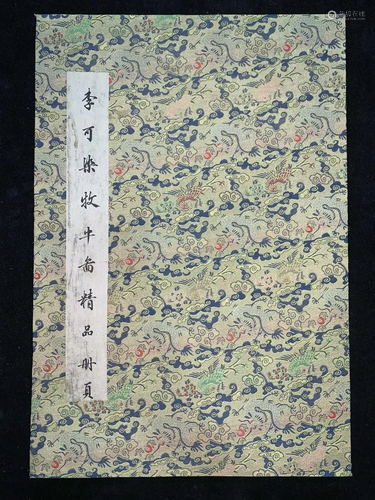 李可染牧牛畣精品册頁